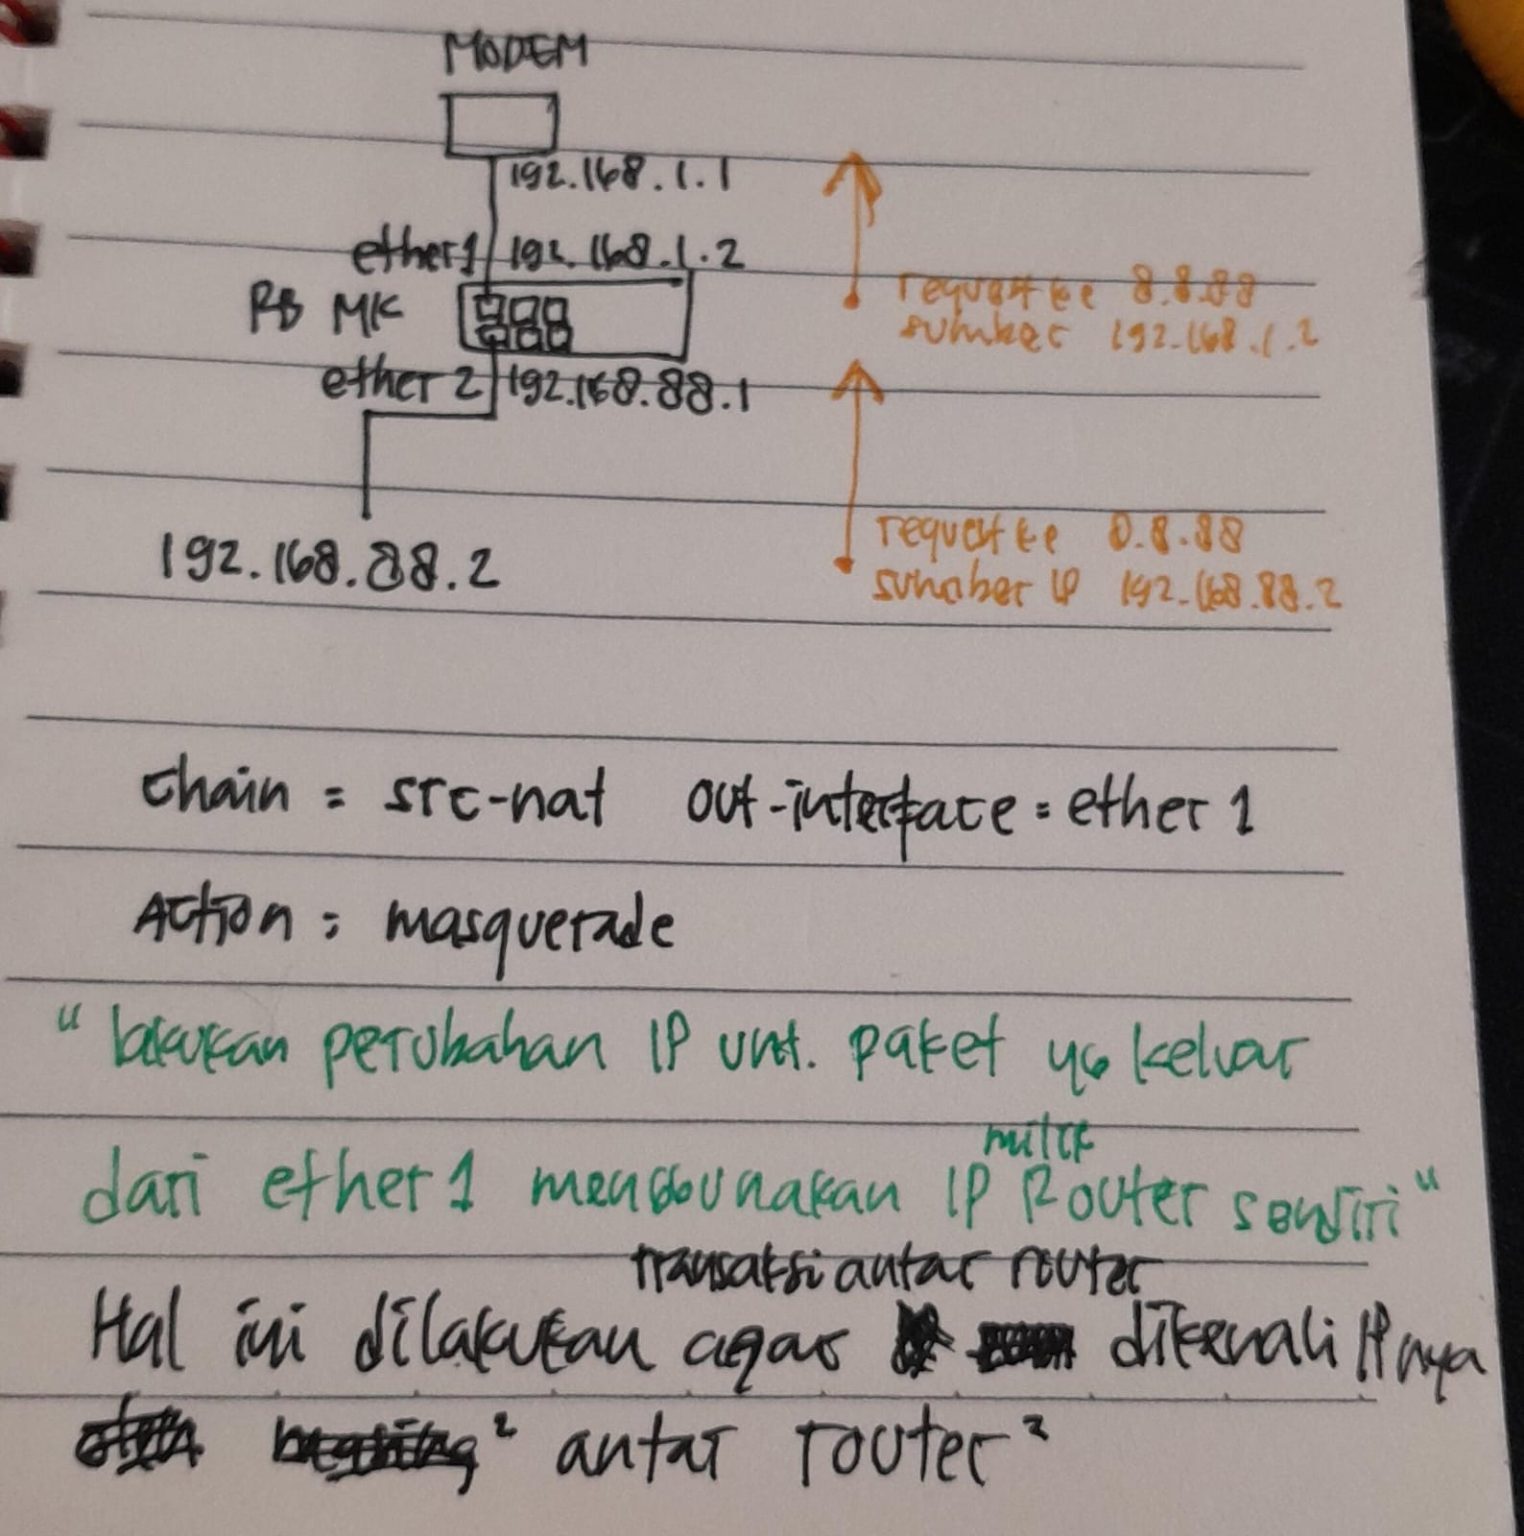 MODEM
192.168.1.1
ether1 192.168.1.2
RB MK
request ke 8.8.88
sumber 192.168.1.2
ether 2 192.168.88.1
request ke 8.8.88
sumber IP 192.168.88.2
192.168.88.2
chain = src-nat out-interface = ether 1
Action = masquerade
" lakukan perubahan IP unt. paket yg keluar
milik
dari ether 1 menggunakan IP Router sendiri "
transaksi antar router
Hal ini dilakukan agar dikenali IPnya
² antar router ²